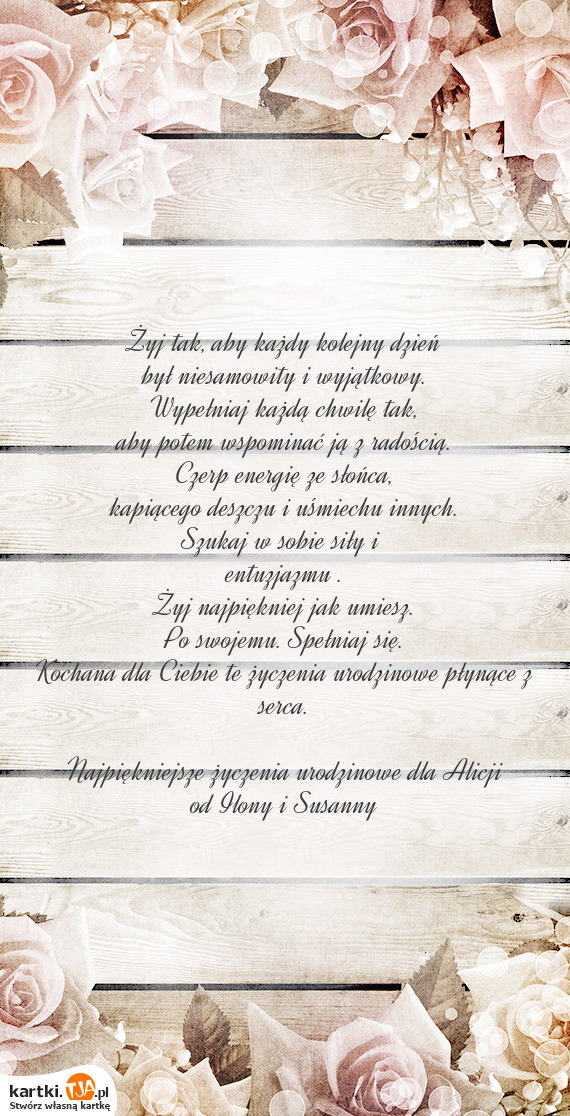 Żyj tak, aby każdy kolejny dzień
był niesamowity i wyjątkowy.
Wypełniaj każdą chwilę tak,
aby potem wspominać ją z radością.
Czerp energię ze słońca,
kapiącego deszczu i uśmiechu innych.
Szukaj w sobie siły i
entuzjazmu .
Żyj najpiękniej jak umiesz.
Po swojemu. Spełniaj się.
Kochana dla Ciebie te życzenia urodzinowe płynące z
serca.
Najpiękniejsze życzenia urodzinowe dla Alicji
od Ilony i Susanny
kartki.TJA.pl
Stwórz własną kartkę